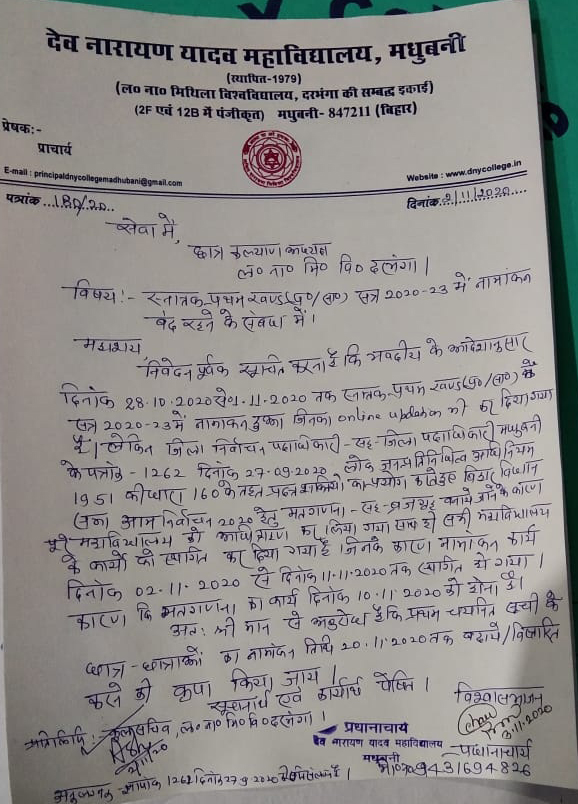 देव नारायण यादव महाविद्यालय, मधुबनी
(स्थापित-1979)
(ल० ना० मिथिला विश्वविद्यालय, दरभंगा की सम्बद्ध इकाई)
(2F एवं 12B में पंजीकृत) मधुबनी- 847211 (बिहार)
प्रेषक:-
प्राचार्य
E-mail : principaldnycollegemadhubani@gmail.com
Website : www.dnycollege.in
पत्रांक...180/20...
दिनांक...2/11/2020...
सेवा में,
छात्र कल्याण अध्यक्ष
ल० ना० मि० वि० दरभंगा।
विषय:- स्नातक प्रथम खण्ड (प्र०/सा०) सत्र 2020-23 में नामांकन
बंद रहने के संबंध में।
महाशय,
निवेदन पूर्वक सूचित करना है कि भवदीय के आदेशानुसार
दिनांक 28.10.2020 से 11.2020 तक स्नातक प्रथम खण्ड (प्र०/सा०) के
सत्र 2020-23 में नामांकन हुआ जिनका online updation भी कर दिया गया
है। लेकिन जिला निर्वाचन पदाधिकारी-सह-जिला पदाधिकारी मधुबनी
के पत्रांक-1262 दिनांक 27-09-2020 लोक जनप्रतिनिधित्व अधिनियम
1951 की धारा 160 के तहत प्रदत्त शक्तियों का प्रयोग करते हुए बिहार विधान
सभा आम निर्वाचन 2020 हेतु मतगणना-सह-व्रजगृह बनाये जाने के कारण
पूरे महाविद्यालय को अधिग्रहण कर लिया गया साथ ही सभी महाविद्यालय
के कार्यों को स्थगित कर दिया गया है जिनके कारण नामांकन कार्य
दिनांक 02.11.2020 से दिनांक 11.11.2020 तक स्थगित हो गया।
कारण कि मतगणना का कार्य दिनांक 10.11.2020 को होना है।
अतः श्री मान से अनुरोध है कि प्रथम चयनित सूची के
छात्र-छात्राओं का नामांकन तिथि 20.11.2020 तक बढ़ाये/विस्तारित
करने की कृपा किया जाय।
सूचनार्थ एवं कार्यार्थ प्रेषित।
विश्वासभाजन
प्रतिलिपि- कुलसचिव, ल० ना० मि० वि० दरभंगा।
3.11.2020
प्रधानाचार्य
देव नारायण यादव महाविद्यालय
मधुबनी
प्रधानाचार्य
मो० न० 9431694826
अनुलग्नक- 1262 दिनांक 27.9.2020